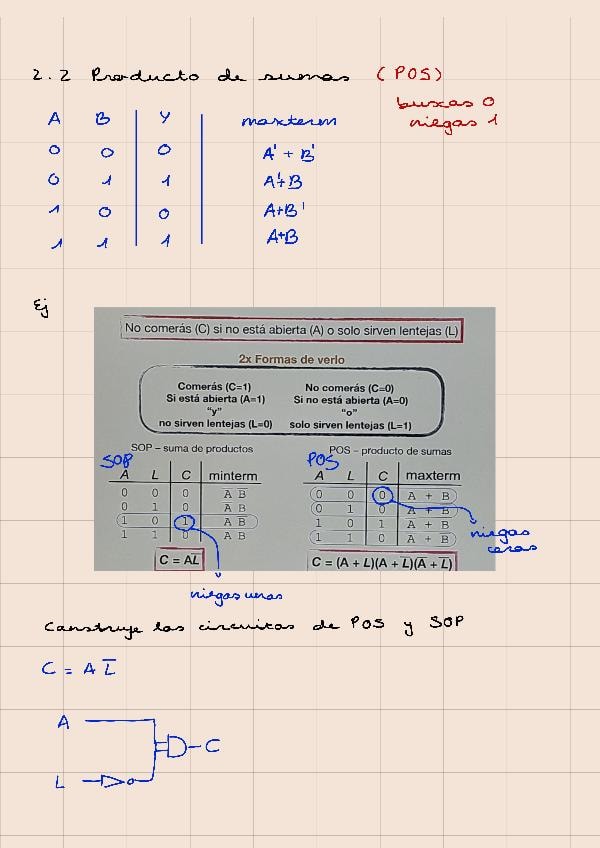 2.2 Producto de sumas (POS)
buscas 0
niegas 1
A B Y maxterm
0 0 0 A' + B'
0 1 1 A'+B
1 0 0 A+B'
1 1 1 A+B
Ej
No comerás (C) si no está abierta (A) o solo sirven lentejas (L)
2x Formas de verlo
Comerás (C=1)
Si está abierta (A=1)
"y"
no sirven lentejas (L=0)
No comerás (C=0)
Si no está abierta (A=0)
"o"
solo sirven lentejas (L=1)
SOP – suma de productos
SOP
A L C minterm
0 0 0 A B̅
0 1 0 A B
1 0 1 A B
1 1 0 A B
C = AL̅
niegas unos
POS – producto de sumas
POS
A L C maxterm
0 0 0 A + B
0 1 0 A + B
1 0 1 A + B
1 1 0 A + B
niegas
ceros
C = (A + L)(A + L̅)(A̅ + L̅)
Construye los circuitos de POS y SOP
C = A L̅
A
C
L